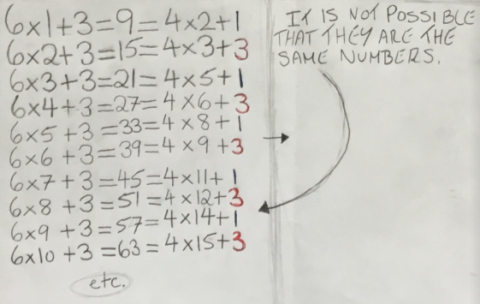 6x1+3=9=4x2+1
6x2+3=15=4x3+3
6x3+3=21=4x5+1
6x4+3=27=4x6+3
6x5+3=33=4x8+1
6x6+3=39=4x9+3
6x7+3=45=4x11+1
6x8+3=51=4x12+3
6x9+3=57=4x14+1
6x10+3=63=4x15+3
etc.
IT IS NOT POSSIBLE
THAT THEY ARE THE
SAME NUMBERS.